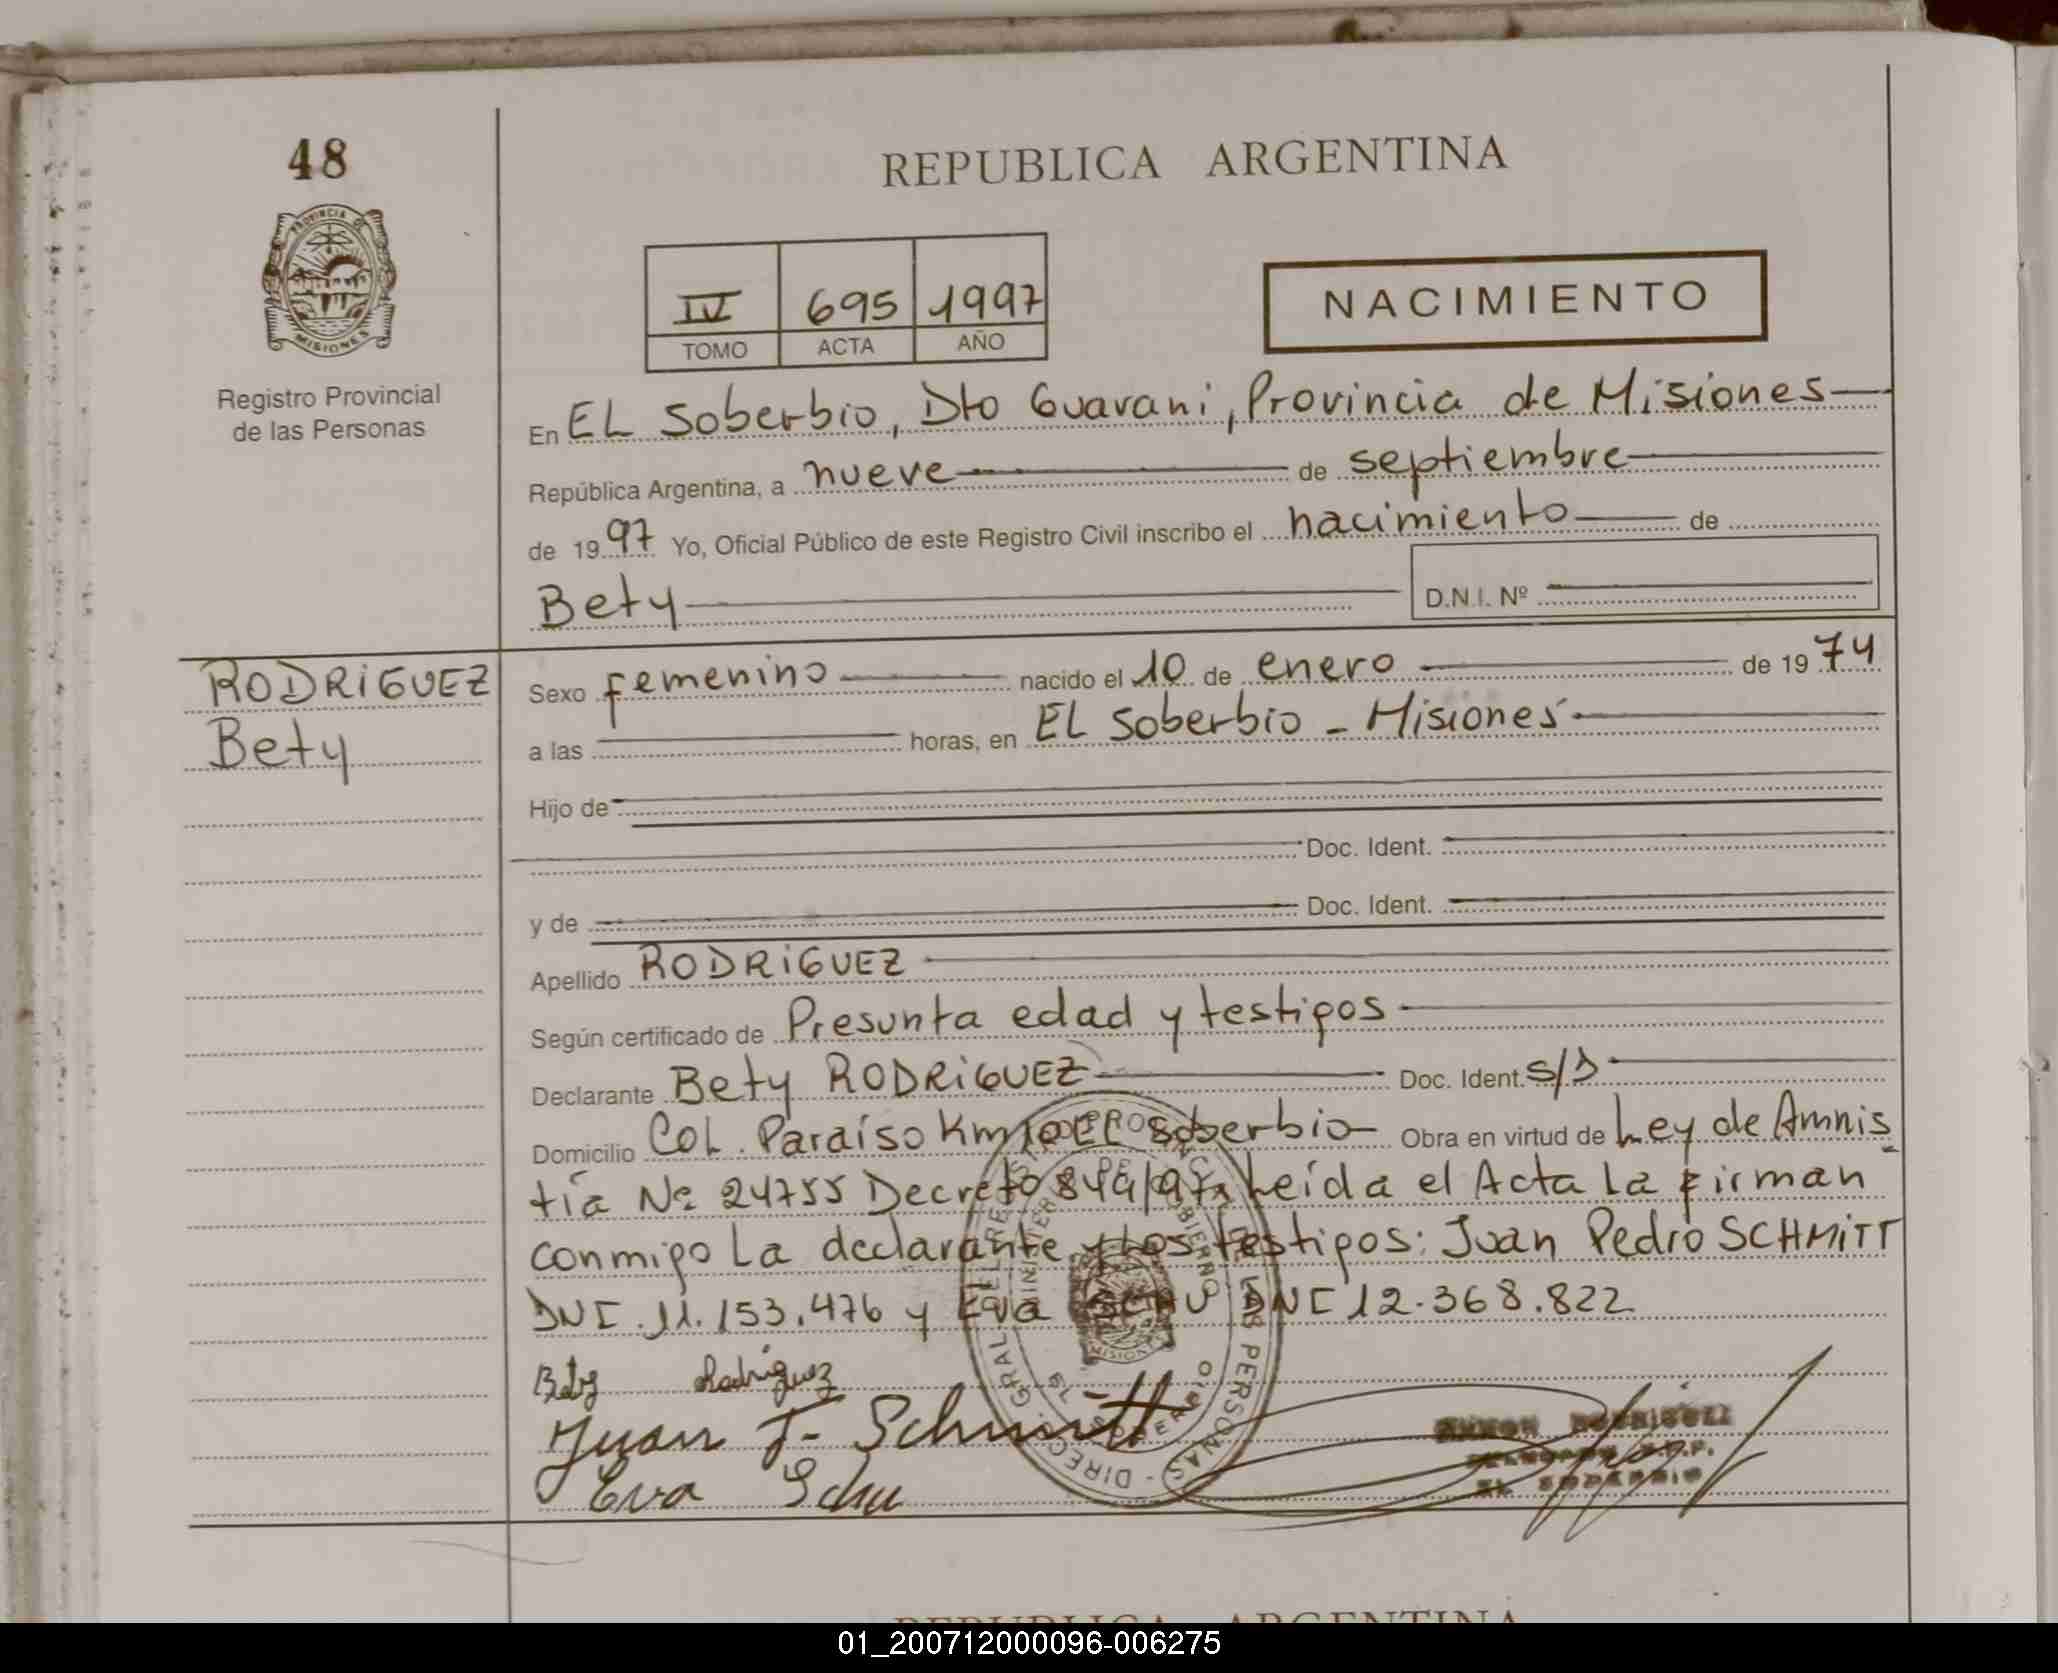 48
REPUBLICA ARGENTINA
PROVINCIA DE
MISIONES
Registro Provincial
de las Personas
IV 695 1997
TOMO ACTA AÑO
NACIMIENTO
En EL Soberbio, Dto Guarani, Provincia de Misiones
República Argentina, a nueve de septiembre
de 1997 Yo, Oficial Público de este Registro Civil inscribo el nacimiento de
Bety D.N.I. Nº
RODRIGUEZ
Bety
Sexo femenino nacido el 10 de enero de 1974
a las horas, en EL Soberbio - Misiones
Hijo de
Doc. Ident.
y de Doc. Ident.
Apellido RODRIGUEZ
Según certificado de Presunta edad y testigos
Declarante Bety RODRIGUEZ Doc. Ident. S/D
Domicilio Col. Paraíso Km 10 EL Soberbio Obra en virtud de Ley de Amnis
tía Nº 24755 Decreto 849/97. Leída el Acta la firman
conmigo La declarante y Los testigos: Juan Pedro SCHMITT
DNI. 11.153.476 y Eva SCHU DNI 12.368.822
Bety Rodriguez
Juan P. Schmitt
Eva Schu
RODRIGUEZ
EL SOBERBIO
DIREC. GRAL DEL REGISTRO PROVINCIAL DE LAS PERSONAS
MISIONES
REPUBLICA ARGENTINA
01_200712000096-006275